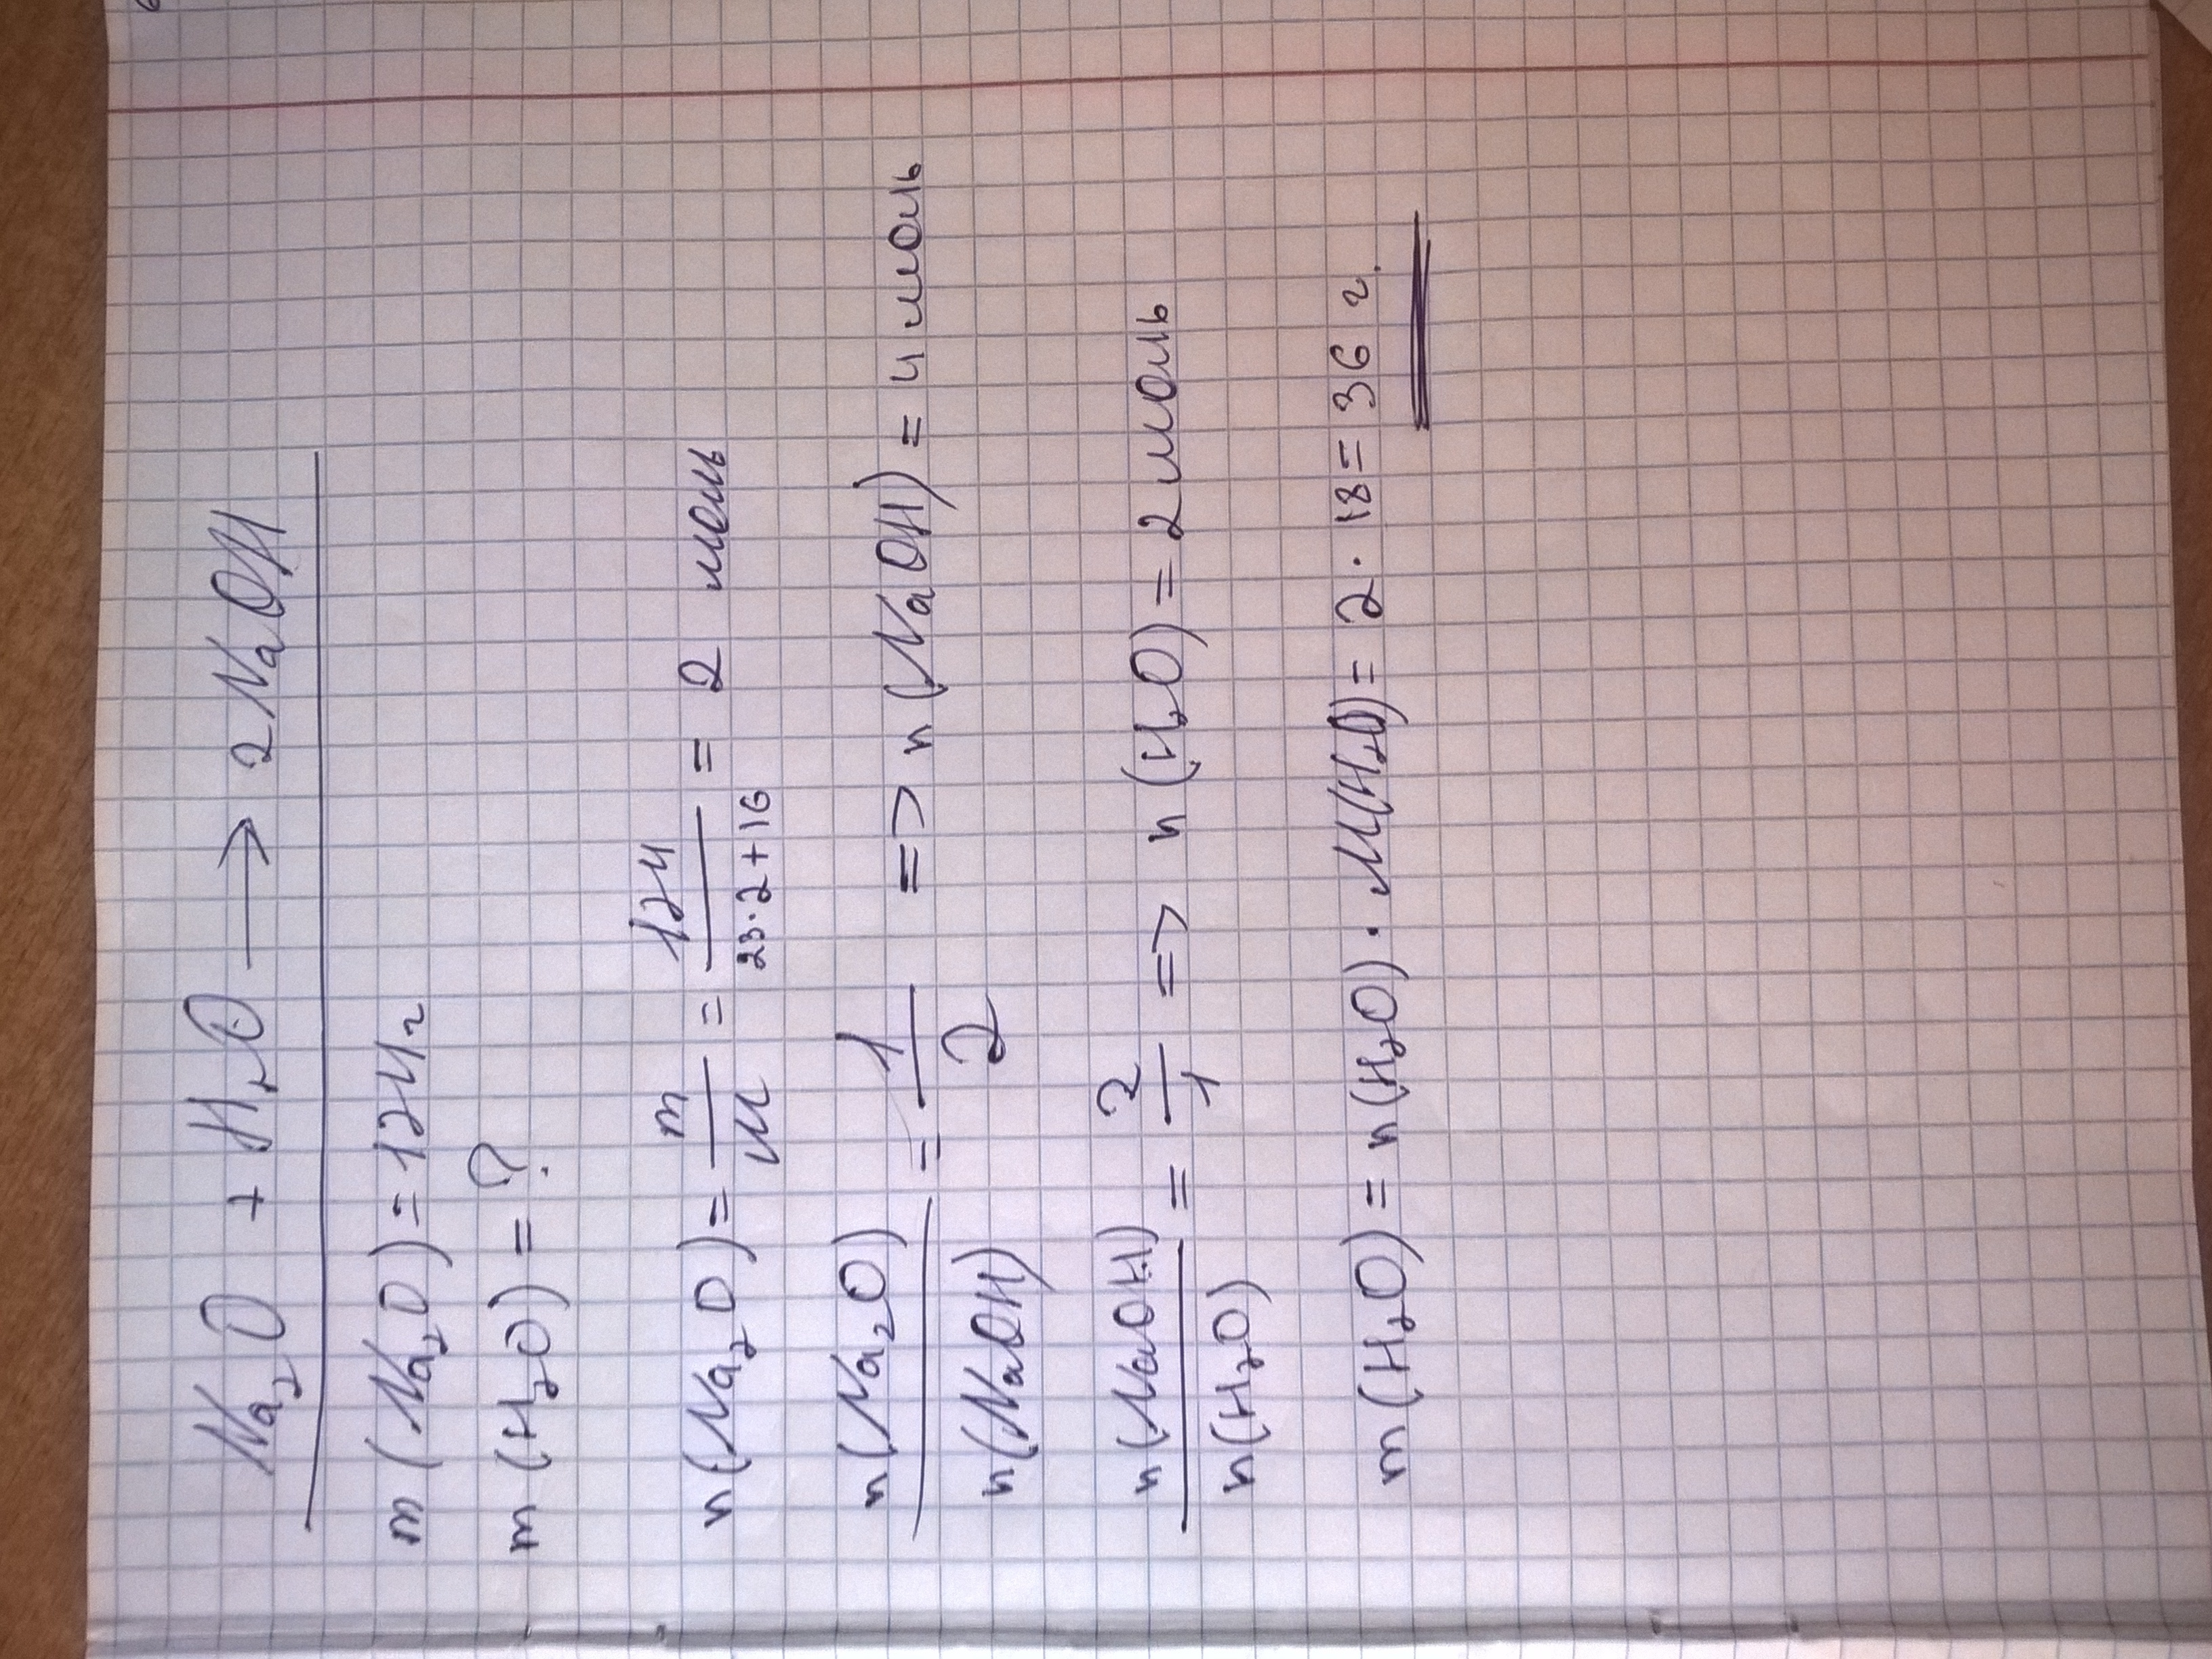 Na₂O + H₂O → 2NaOH
m(Na₂O) = 124 г
m(H₂O) = ?
n(Na₂O) = m/M = 124/(23·2+16) = 2 моль
n(Na₂O)/n(NaOH) = 1/2 => n(NaOH) = 4 моль
n(NaOH)/n(H₂O) = 2/1 => n(H₂O) = 2 моль
m(H₂O) = n(H₂O)·M(H₂O) = 2·18 = 36 г.